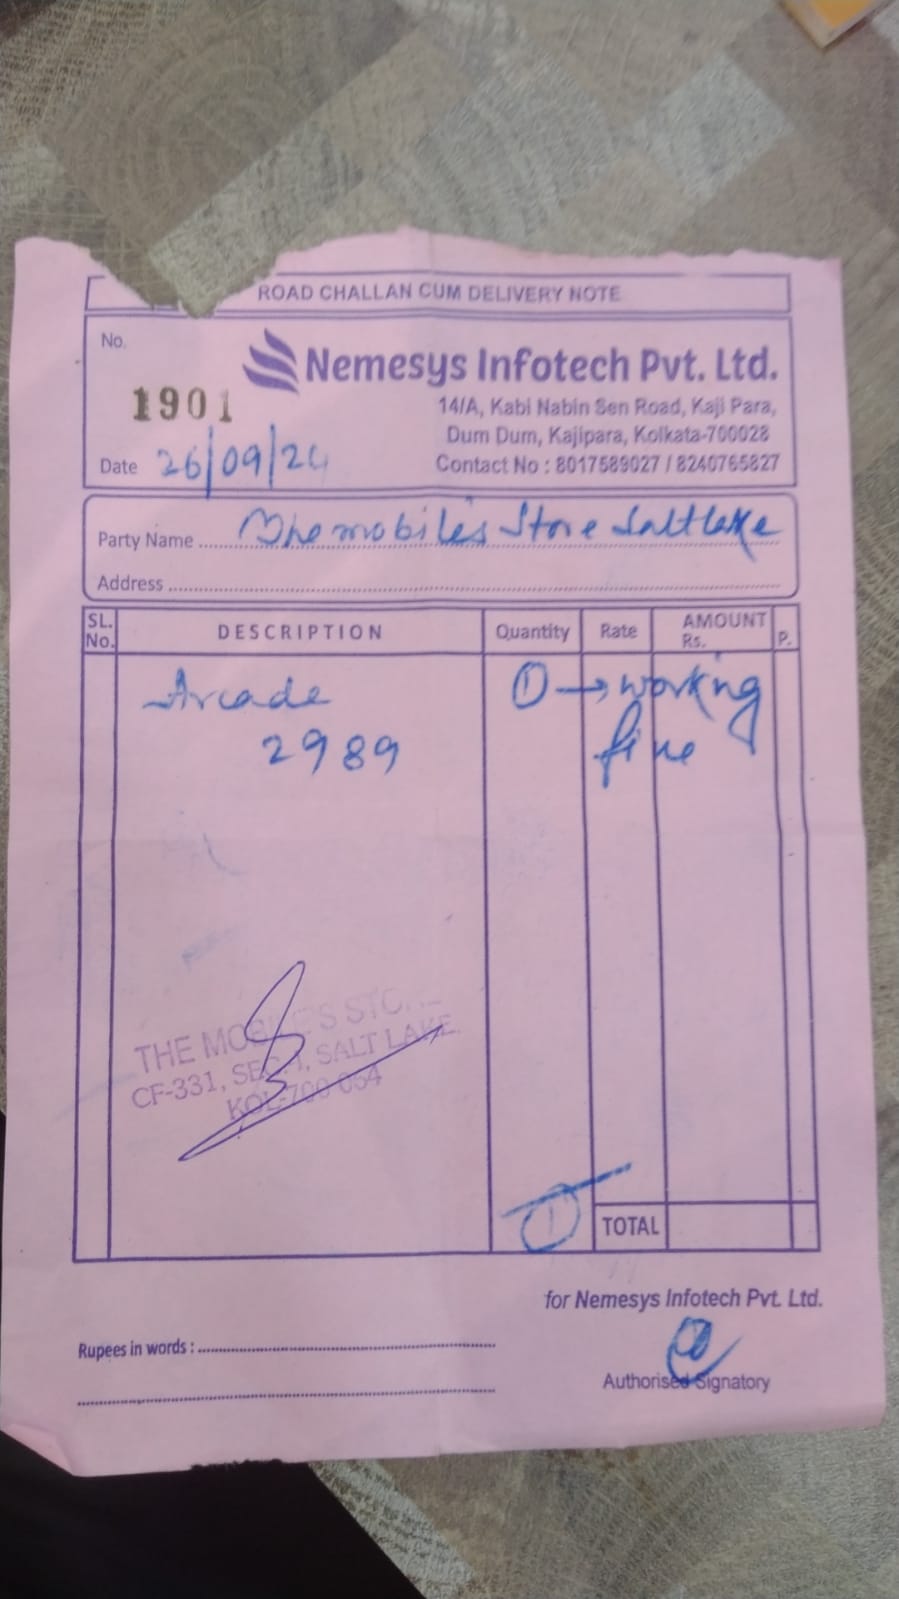 ROAD CHALLAN CUM DELIVERY NOTE
No.
1901
Nemesys Infotech Pvt. Ltd.
14/A, Kabi Nabin Sen Road, Kaji Para,
Dum Dum, Kajipara, Kolkata-700028
Contact No : 8017589027 / 8240765827
Date 26/09/24
Party Name The mobiles Store Saltlake
Address
SL. No. DESCRIPTION Quantity Rate AMOUNT Rs. P.
Arcade ① → working
2989 fine
THE MOBILE'S STORE
CF-331, SEC-1, SALT LAKE
KOL-700 064
① TOTAL
for Nemesys Infotech Pvt. Ltd.
Rupees in words :
Authorised Signatory